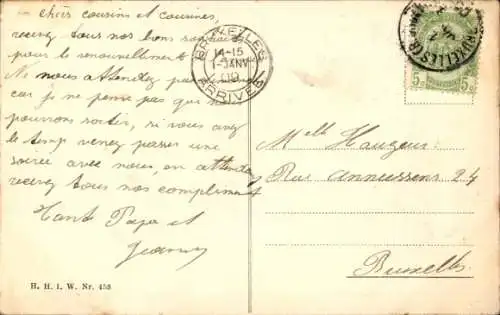 chers cousins et cousines,
recevez tous nos bons souhaits
pour le renouvellement
Ne nous attendez pas
car je ne pense pas que n
pourrons sortir, si vous avez
le temps venez passer une
soirée avec nous, en attendant
recevez tous nos compliments
Papa et
Jeanne
H. H. I. W. Nr. 453
BRUXELLES
14-15
1 JANV
09
ARRIVÉE
BRUXELLES
5c 5c
Melle Hauzeur
Rue Anneessens 24
Bruxelles